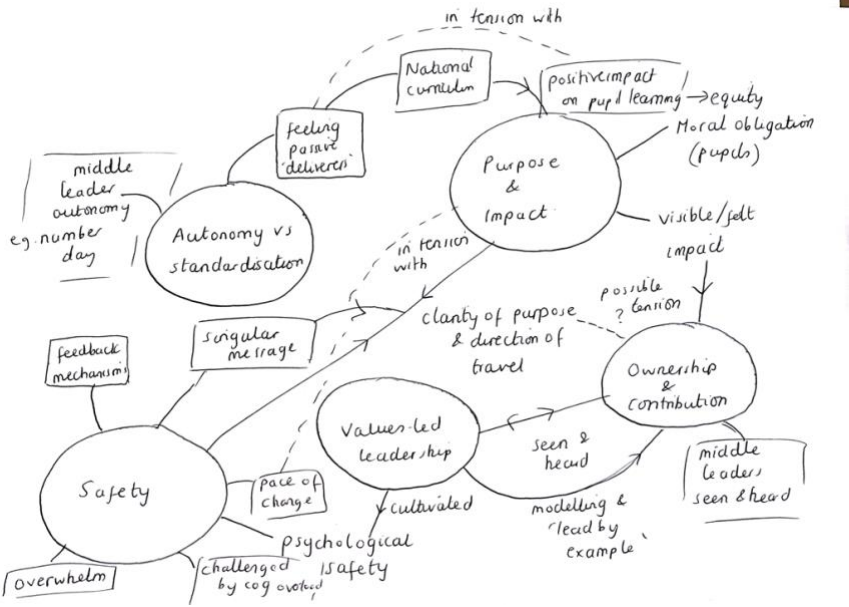 in tension with
National
curriculum
positive impact
on pupil learning → equity
Moral obligation
(pupils)
feeling
passive
'deliverers'
Purpose
&
Impact
middle
leader
autonomy
eg. number
day
Autonomy vs
standardisation
visible/felt
impact
in tension
with
possible
? tension
clarity of purpose
& direction of
travel
singular
message
feedback
mechanisms
Ownership
&
contribution
Values-led
leadership
seen &
heard
middle
leaders
seen & heard
Safety
pace of
change
cultivated
modelling &
'lead by
example'
psychological
safety
overwhelm
challenged
by cog overload